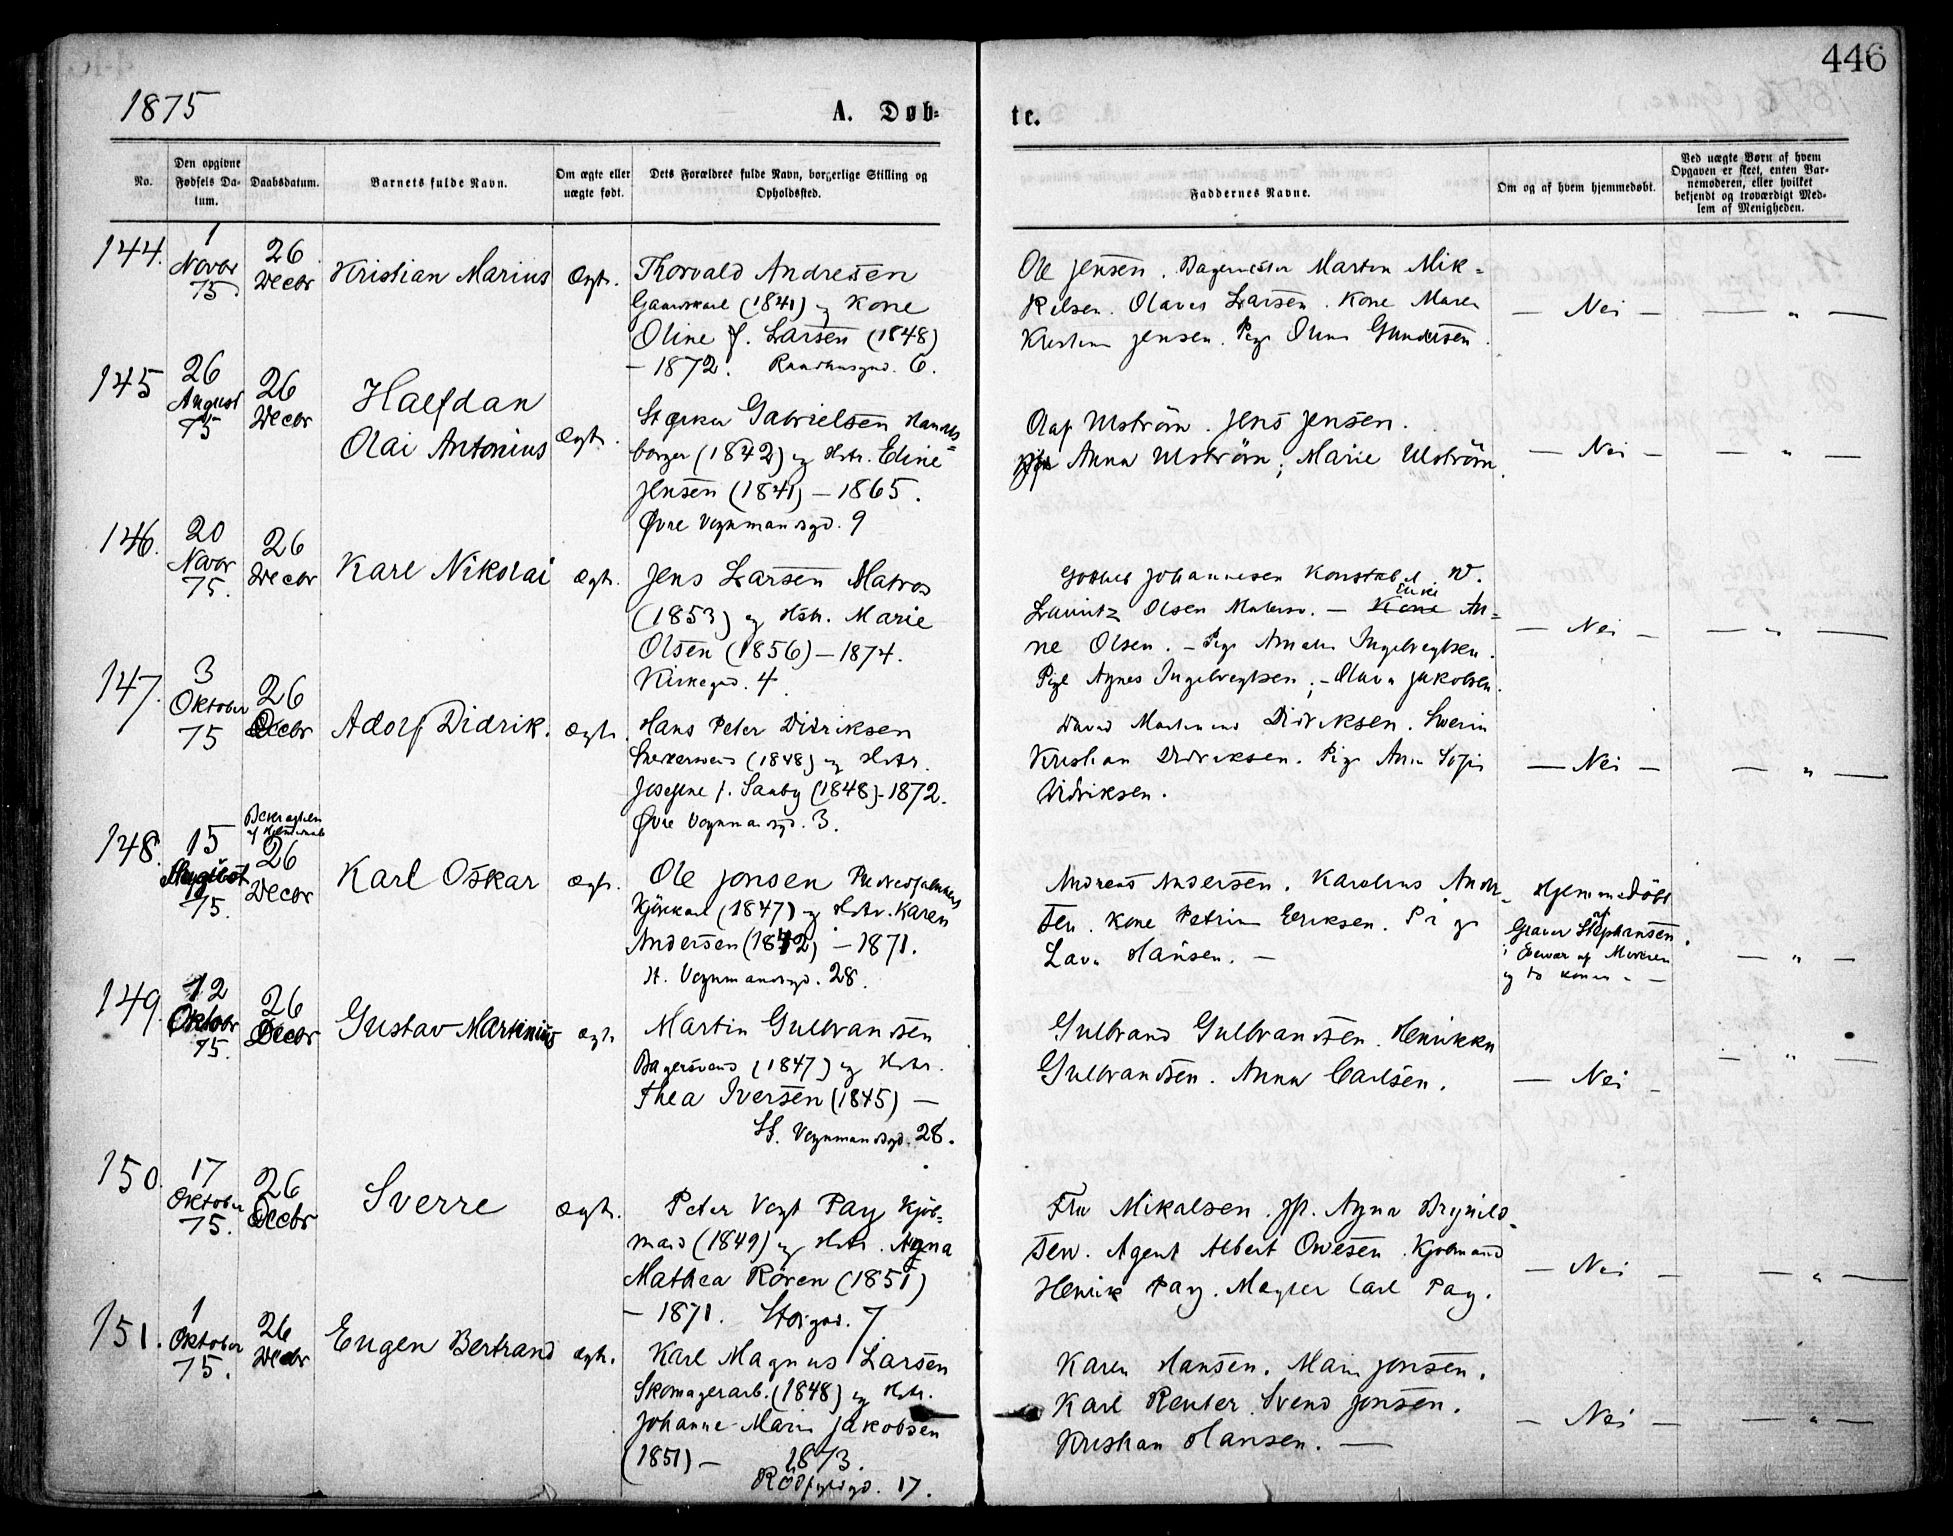 446
1875
A. Døb-
te.
No.
Den opgivne
Fødsels Da-
tum.
Daabsdatum.
Barnets fulde Navn.
Om ægte eller
uægte født.
Dets Forældres fulde Navn, borgerlige Stilling og
Opholdssted.
Faddernes Navne.
Om og af hvem hjemmedøbt.
Ved uægte Børn af hvem
Opgaven er skeet, enten Bar-
nemoderen, eller hvilket
bekjendt og troværdigt Med-
lem af Menigheden.
144.
1
Novbr
75
26
Decbr
Kristian Marius
Ægte.
Thorvald Andresen
Gaardskarl (1841) og Kone
Oline f. Larsen (1848)
- 1872. Raadhusgad. 6.
Ole Jensen. Bagermester Martin Mik-
kelsen. Olaves Larsen. Kone Maren
Jensen. Pige Gundersen
— Nei —
— " —
145
26
August
75
26
Decbr
Halfdan
Olai Antonius
Ægte.
Gabrielsen Handels-
borger (1842) og Hstr. Edine
Jensen (1841) - 1865.
Øvre Vognmandsgd. 9
Olaf Ulström. Jens Jensen.
Anna Ulström; Marie Ulström.
— Nei —
— " —
146.
20
Novbr
75.
26
Decbr
Karl Nikolai
Ægte.
Jens Larsen Matros
(1853) og Hstr. Marie
Olsen (1856) - 1874.
Kirkegd. 4.
Johannesen Konstabel.
Lauritz Olsen Matros. — Kone An-
Enke
ne Olsen. - Pige
Pige Agnes ; - Olava Jakobsen.
— Nei —
— " —
147.
3
Oktober
75
26
Decbr
Adolf Didrik.
Ægte.
Hans Peter Didriksen
(1848) og Hstr.
Josefine f. Sanby (1848) - 1872.
Øvre Vognmandsgd. 3.
Didriksen.
Kristian Didriksen. Pige
Didriksen.
— Nei —
— " —
148.
15
August
75.
26
Decbr
Karl Oskar
Ægte.
Ole Jonsen
(1847) og Hstr. Karen
Andersen (1842) - 1871.
St. Vognmandsgd. 28.
Andreas Andersen. Karolius
sen. Kone Petrine Eriksen. Pige
Hansen. —
Hjemmedöbt
af
Graver Stephansen
og to koner. —
— " —
149.
12
Oktobr
75.
26
Decbr
Gustav Martinius
Ægte.
Martin Gulbrandsen
Bagersvend (1847) og Hstr.
Thea Iversen (1845) —
St. Vognmandsgd. 28.
Gulbrand Gulbrandsen. Henrikke
Gulbrandsen. Anna Carlsen.
— Nei —
— " —
150.
17
Oktober
75.
26
Decbr
Sverre
Ægte.
Peter Vogt Pay Kjöb-
mand (1849) og Hstr. Agna
Mathea Rören (1851)
- 1871. Storgad. 7
Fru Mikalsen. Jfr. Agna Brynild-
sen. Agent Albert Owesen. Kjøbmand
Henrik Pay. Mægler Carl Pay.
— Nei —
— " —
151.
1
Oktober
75.
26
Decbr
Eugen Bertrand
Ægte.
Karl Magnus Larsen
Skomagerarb. (1848) og Hstr.
Johanne Marie Jakobsen
(1851) - 1873.
Rödfyldgd. 17.
Karen Hansen. Jonsen.
Karl Reuter. Svend Jonsen.
Kristian Hansen. —
— Nei —
— " —